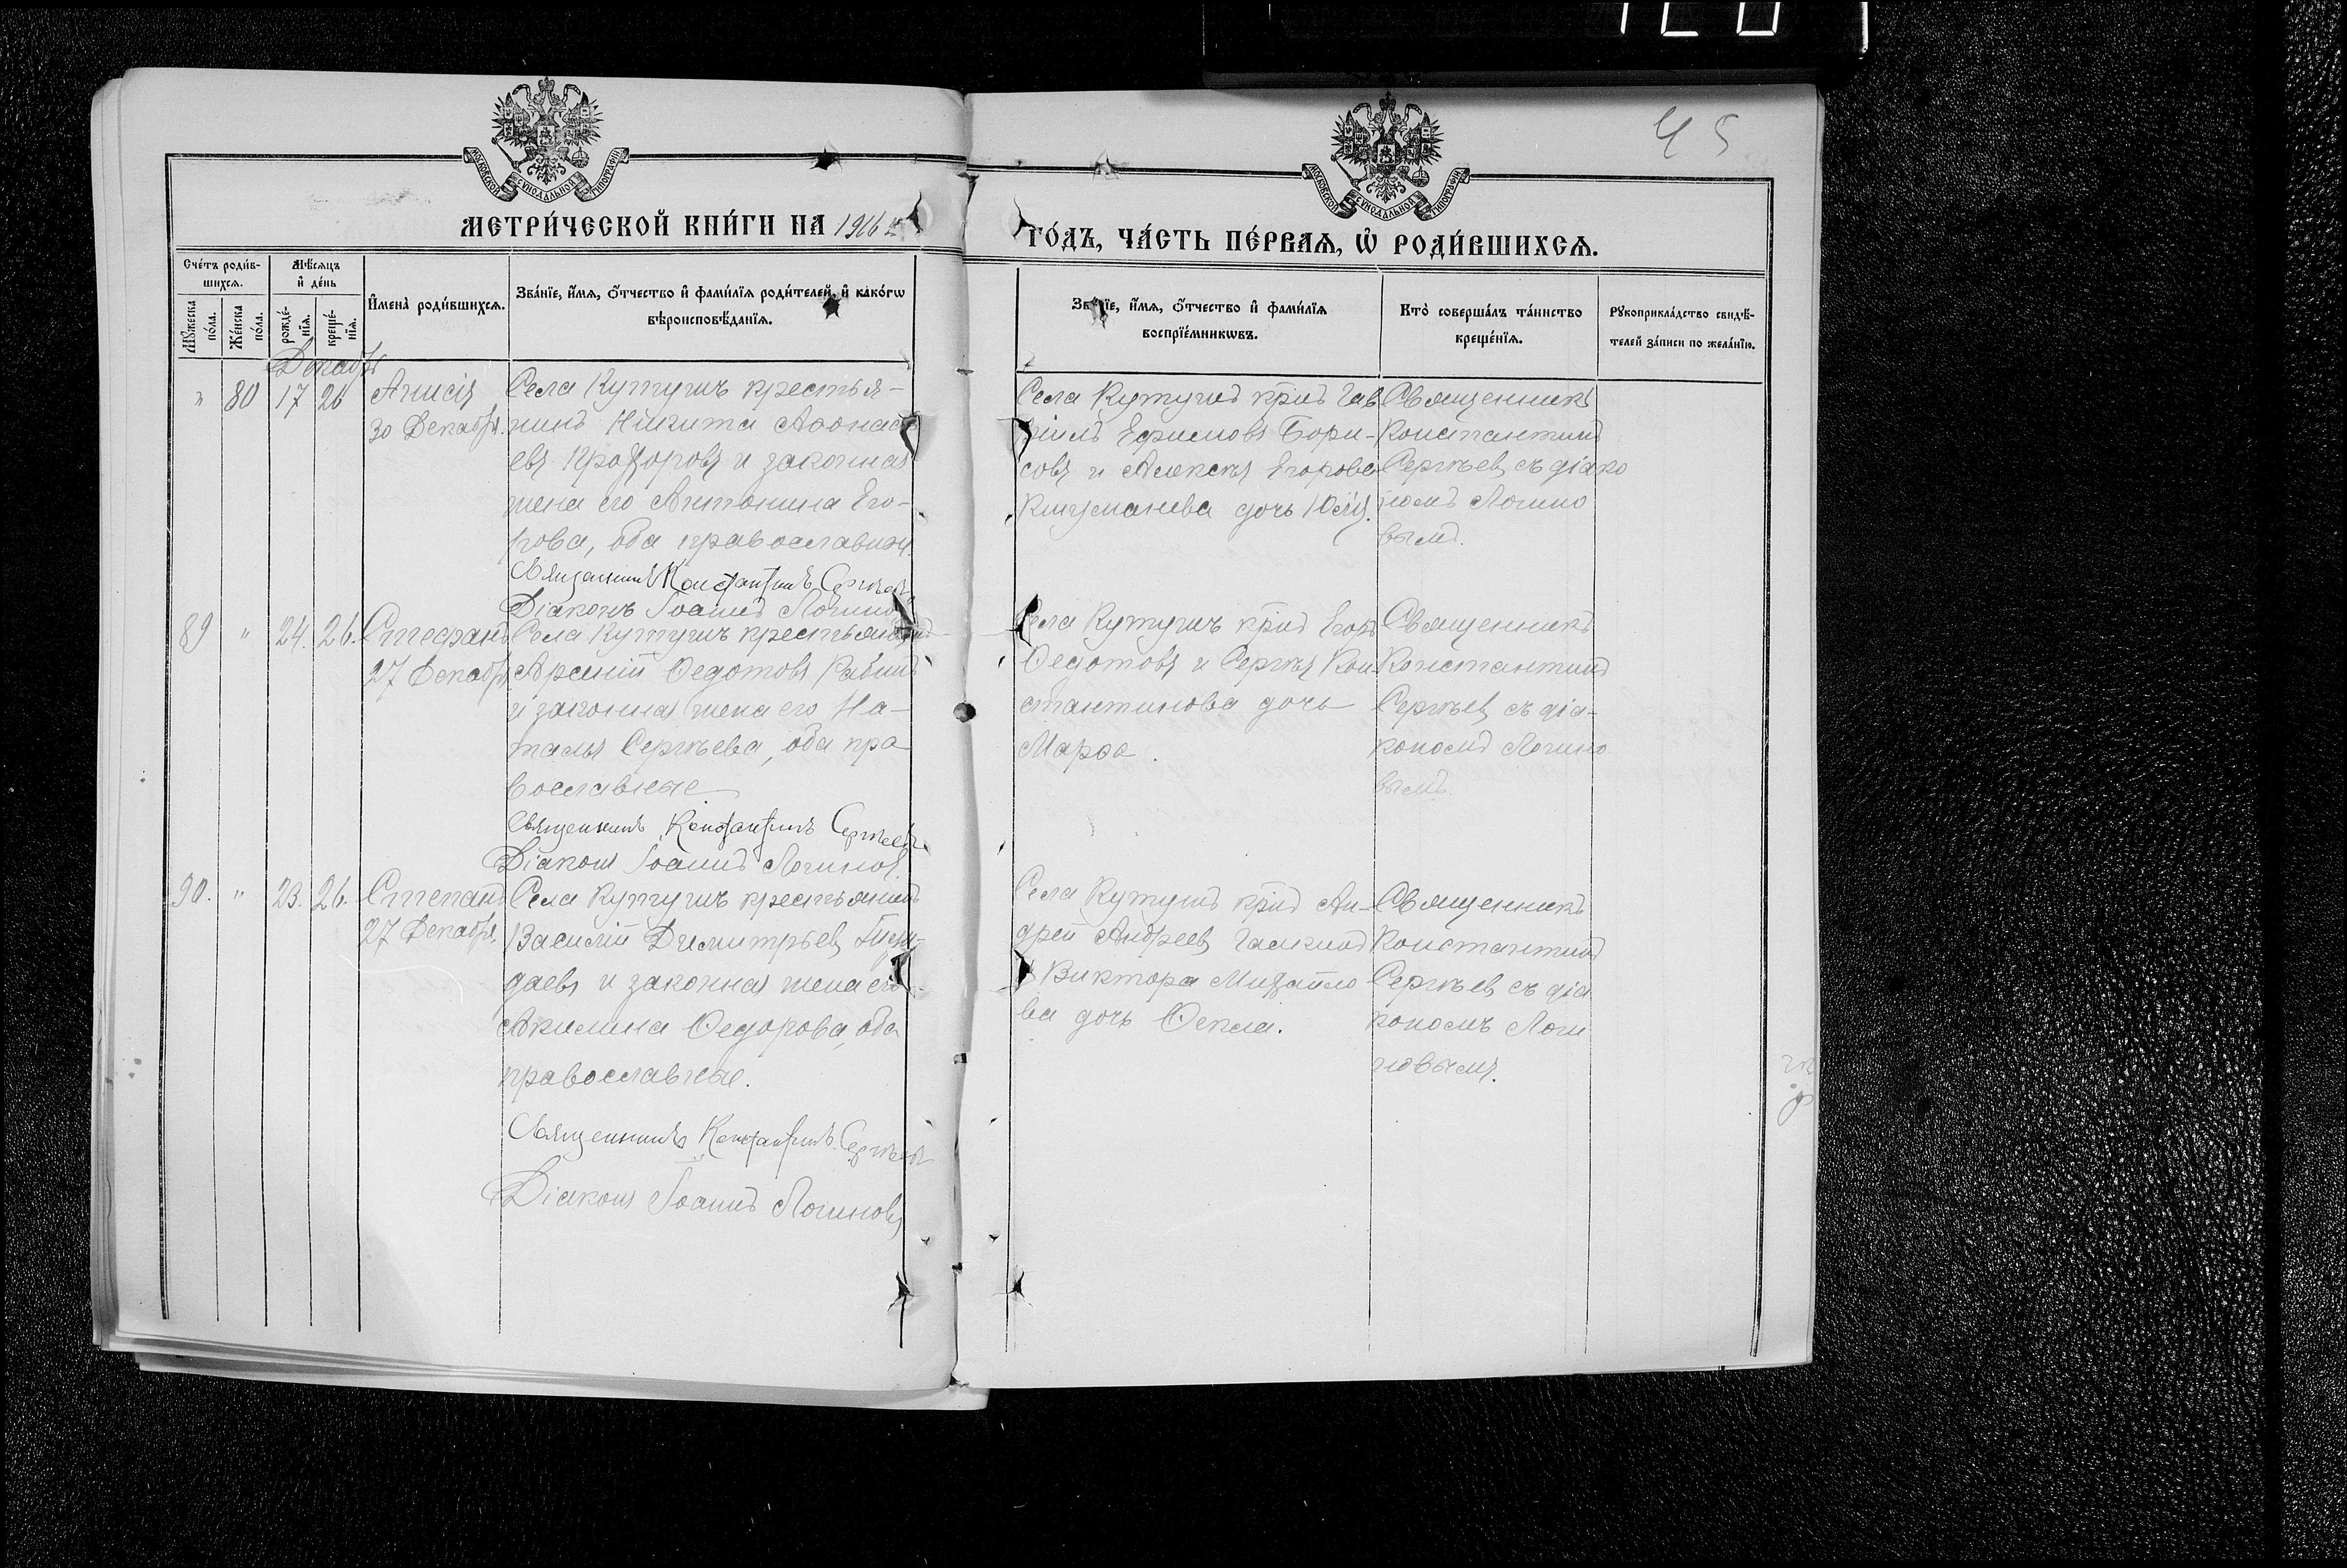 45
МОСКОВСКОЙ СѴНОДАЛЬНОЙ ТИПОГРАФІИ
МОСКОВСКОЙ СѴНОДАЛЬНОЙ ТИПОГРАФІИ
МЕТРИ́ЧЕСКОЙ КНИ́ГИ НА 1916 й
ГО́ДЪ, ЧА́СТЬ ПЕ́РВАѦ, Ѡ҆ РОДИ́ВШИХСѦ.
Сче́тъ роди́в-
шихсѧ.
Мꙋ́жеска по́ла.
Же́нска по́ла.
Мѣ́сѧцъ
и҆ де́нь
рожде́-
нїѧ.
креще́-
нїѧ.
И҆мена̀ роди́вшихсѧ.
Зва́нїе, и҆́мѧ, ѻ҆́тчество и҆ фами́лїѧ роди́телей, и҆ како́гѡ
вѣроисповѣ́данїѧ.
Зва́нїе, и҆́мѧ, ѻ҆́тчество и҆ фами́лїѧ
воспрїе́мникѡвъ.
Кто̀ соверша́лъ та́инство
креще́нїѧ.
Рꙋкоприкла́дство свидѣ́-
телей за́писи по жела́нїю.
Декабрь
" 80 17 26 Анисія
30 Декабря.
Села Кутушъ крестья-
нинъ Никита Аѳонась
евъ Прохоровъ и законная
жена его Антонина Его-
рова, оба православные.
Священникъ Константинъ Сергѣевъ
Діаконъ Іоаннъ Логиновъ
Села Кутушъ кр̃нъ Гав
ріилъ Ефимовъ Бори-
совъ и Алексѣя Егорова
дочь Юлія.
Священникъ
Константинъ
Сергѣевъ съ діако
номъ Логино
вымъ.
89 " 24. 26. Стефанъ
27 Декабря
Села Кутушъ крестьянинъ
Арсеній Ѳедотовъ
и законная жена его На-
талья Сергѣева, оба пра
вославные
Священникъ Константинъ Сергѣевъ
Діаконъ Іоаннъ Логиновъ.
Села Кутушъ кр̃нъ Егоръ
Ѳедотовъ и Сергѣя Кон
стантинова дочь
Марѳа.
Священникъ
Константинъ
Сергѣевъ съ діа-
кономъ Логино
вымъ.
90. " 23. 26. Степанъ
27 Декабря.
Села Кутушъ крестьянинъ
Василій Димитріевъ
даевъ и законная жена его
Акилина Ѳедорова, оба
православные.
Священникъ Константинъ Сергѣевъ
Діаконъ Іоаннъ Логиновъ
Села Кутушъ кр̃нъ Ан-
дрей Андреевъ Галкинъ
и Виктора Михайло
ва дочь Ѳекла.
Священникъ
Константинъ
Сергѣевъ съ діа
кономъ Логи
новымъ.